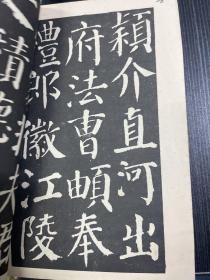 穎介直河出
府法曹頔奉
禮郎徽江陵